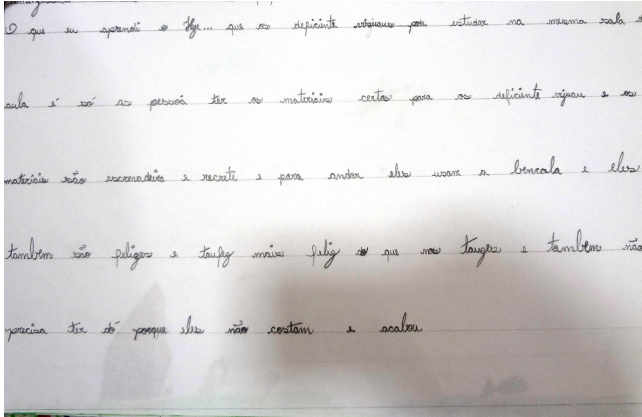 O que eu aprendi o Hoje... que os deficiente visuaus pode estudar na mesma sala d
aula é só as pessoá ter os materiais certos para os deficiente vijuau e os
materiais são escrevadeira e recrete e para andar eles usam a bencala e eles
tambem são feliges e taufeg mais felig do que nos tauges e tambem não
precisa ter dó porque eles não costam e acabou